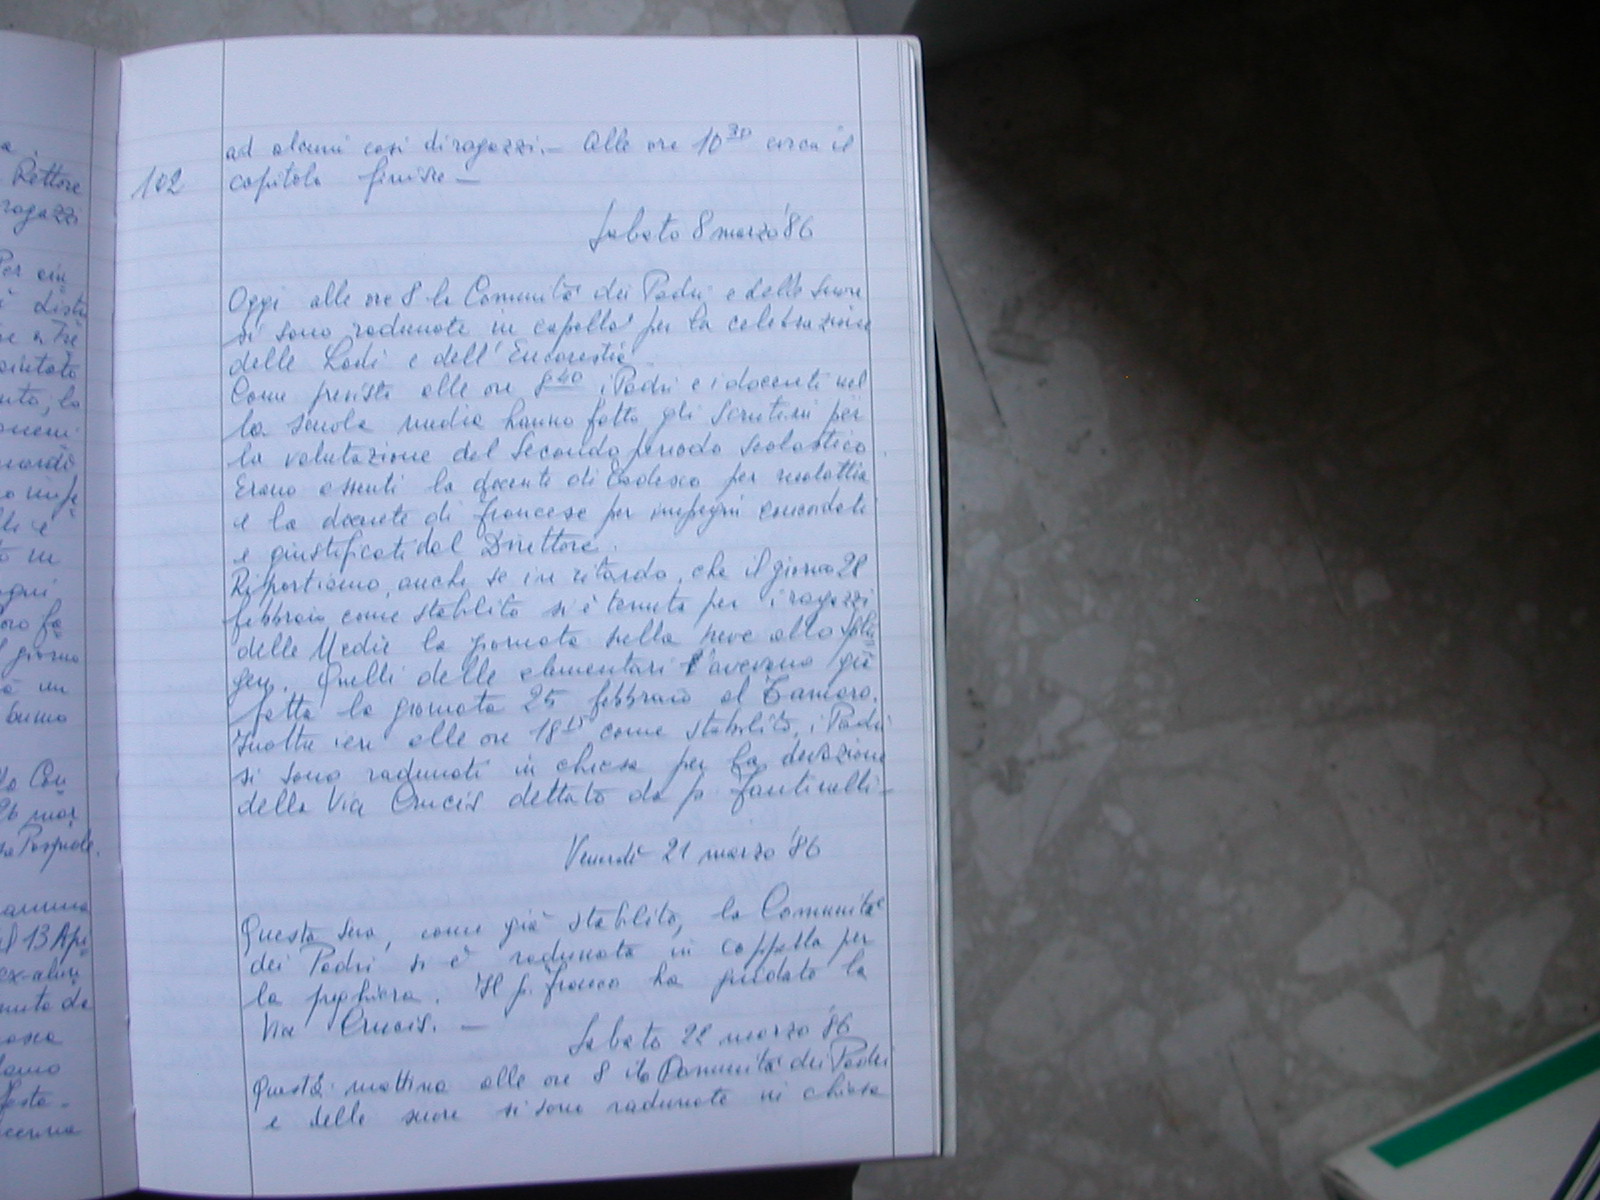 a.
Rettore
ragazzi
Per cin
i dist
ento, la
o in
ogni
giorno
à un
bumo
lo Con
26 mar
sa Pasquale.
13 Apri
ex-alun
nuto da
festa -
102
ad alcuni casi di ragazzi. - Alle ore 10 30 circa il
capitolo finisce -
Sabato 8 marzo '86
Oggi alle ore 8 la Comunità dei Padri e delle Suore
si sono radunate in cappella per la celebrazione
delle Lodi e dell'Eucarestia.
Come previsto alle ore 8 40 i Padri e i docenti nel
la scuola media hanno fatto gli scrutini per
la valutazione del Secondo periodo scolastico.
Erano assenti la docente di Tedesco per malattia
e la docente di francese per impegni concordati
e giustificati dal Direttore.
Riportiamo, anche se in ritardo, che il giorno 28
febbraio come stabilito si è tenuta per i ragazzi
delle Medie la giornata sulla neve allo Splü
gen. Quelli delle elementari l'avevano già
fatta la giornata 25 febbraio al Tamaro.
Inoltre ieri alle ore 18 15 come stabilito, i Padri
si sono radunati in chiesa per la devozione
della Via Crucis dettata da p. Fanticelli -
Venerdì 21 marzo '86
Questa sera, come già stabilito, la Comunità
dei Padri si è radunata in cappella per
la preghiera. Il p. franco ha guidato la
Via Crucis. -
Sabato 22 marzo '86
Questa mattina alle ore 8 la Comunità dei Padri
e delle suore si sono radunate in chiesa